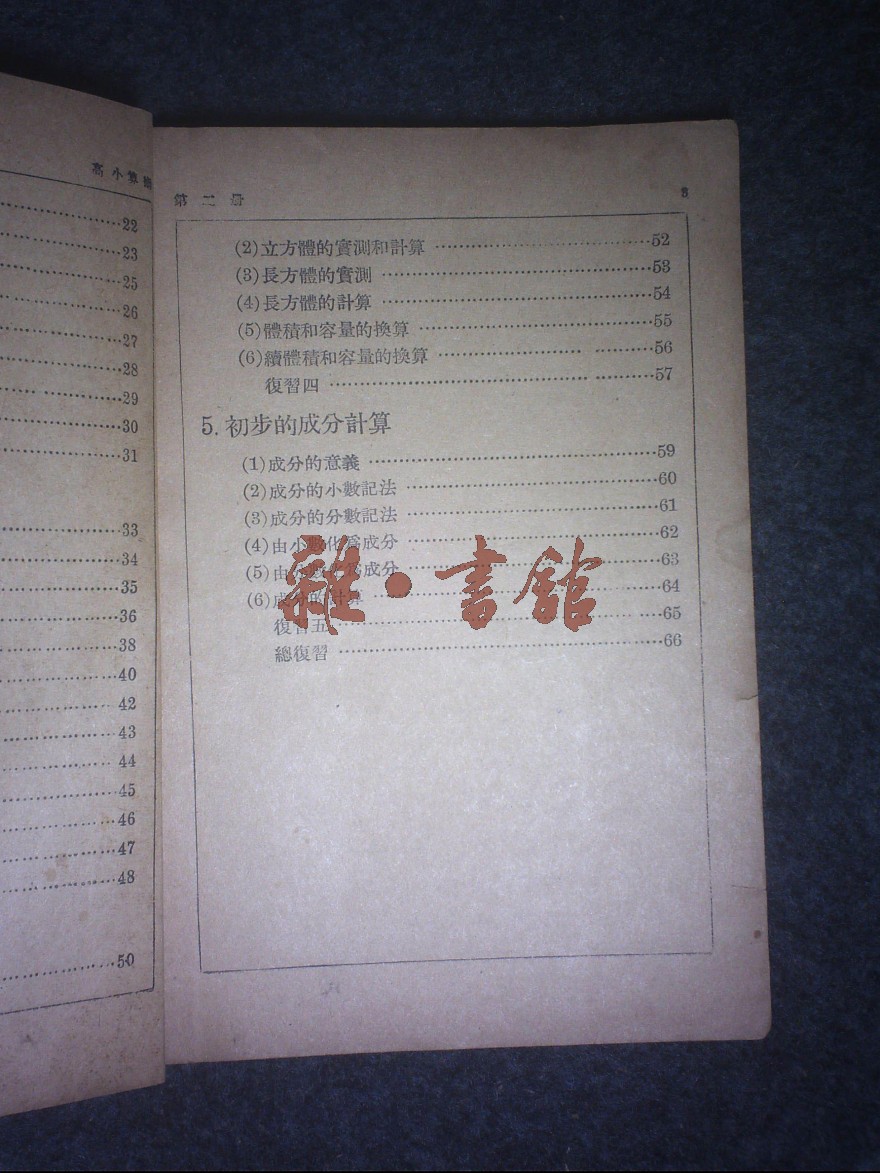 高小算
22
23
25
26
27
28
29
30
31
33
34
35
36
38
40
42
43
44
45
46
47
48
50
第二册 3
(2)立方體的實測和計算 52
(3)長方體的實測 53
(4)長方體的計算 54
(5)體積和容量的換算 55
(6)續體積和容量的換算 56
復習四 57
5. 初步的成分計算
(1)成分的意義 59
(2)成分的小數記法 60
(3)成分的分數記法 61
(4)由小數化爲成分 62
(5)由分數化爲成分 63
(6)成分的計算 64
復習五 65
總復習 66
雜•書館